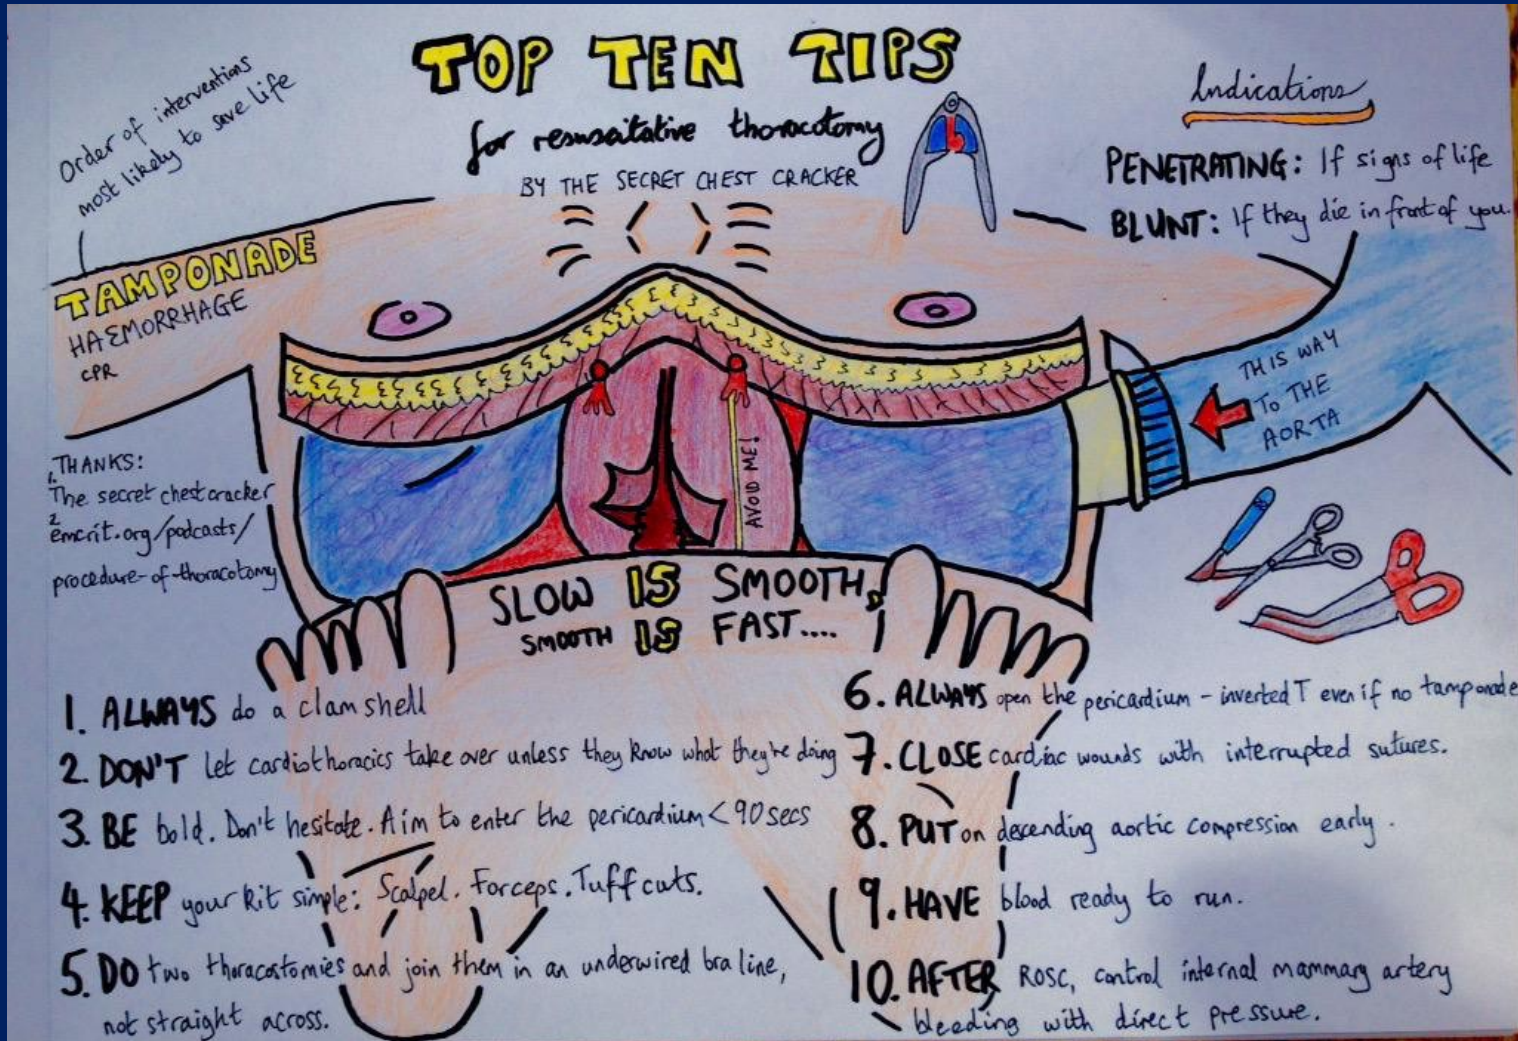 TOP TEN TIPS
for resuscitative thoracotomy
BY THE SECRET CHEST CRACKER
Order of interventions
most likely to save life
TAMPONADE
HAEMORRHAGE
CPR
Indications
PENETRATING: If signs of life
BLUNT: If they die in front of you.
THIS WAY
TO THE
AORTA
AVOID ME!
THANKS:
1. The secret chest cracker
2 emcrit.org/podcasts/
procedure-of-thoracotomy
SLOW IS SMOOTH,
SMOOTH IS FAST....
1. ALWAYS do a clamshell
2. DON'T let cardiothoracics take over unless they know what they're doing
3. BE bold. Don't hesitate. Aim to enter the pericardium < 90 secs
4. KEEP your kit simple: Scalpel. Forceps. Tuff cuts.
5. DO two thoracostomies and join them in an underwired bra line,
not straight across.
6. ALWAYS open the pericardium - inverted T even if no tamponade
7. CLOSE cardiac wounds with interrupted sutures.
8. PUT on descending aortic compression early.
9. HAVE blood ready to run.
10. AFTER ROSC, control internal mammary artery
bleeding with direct pressure.